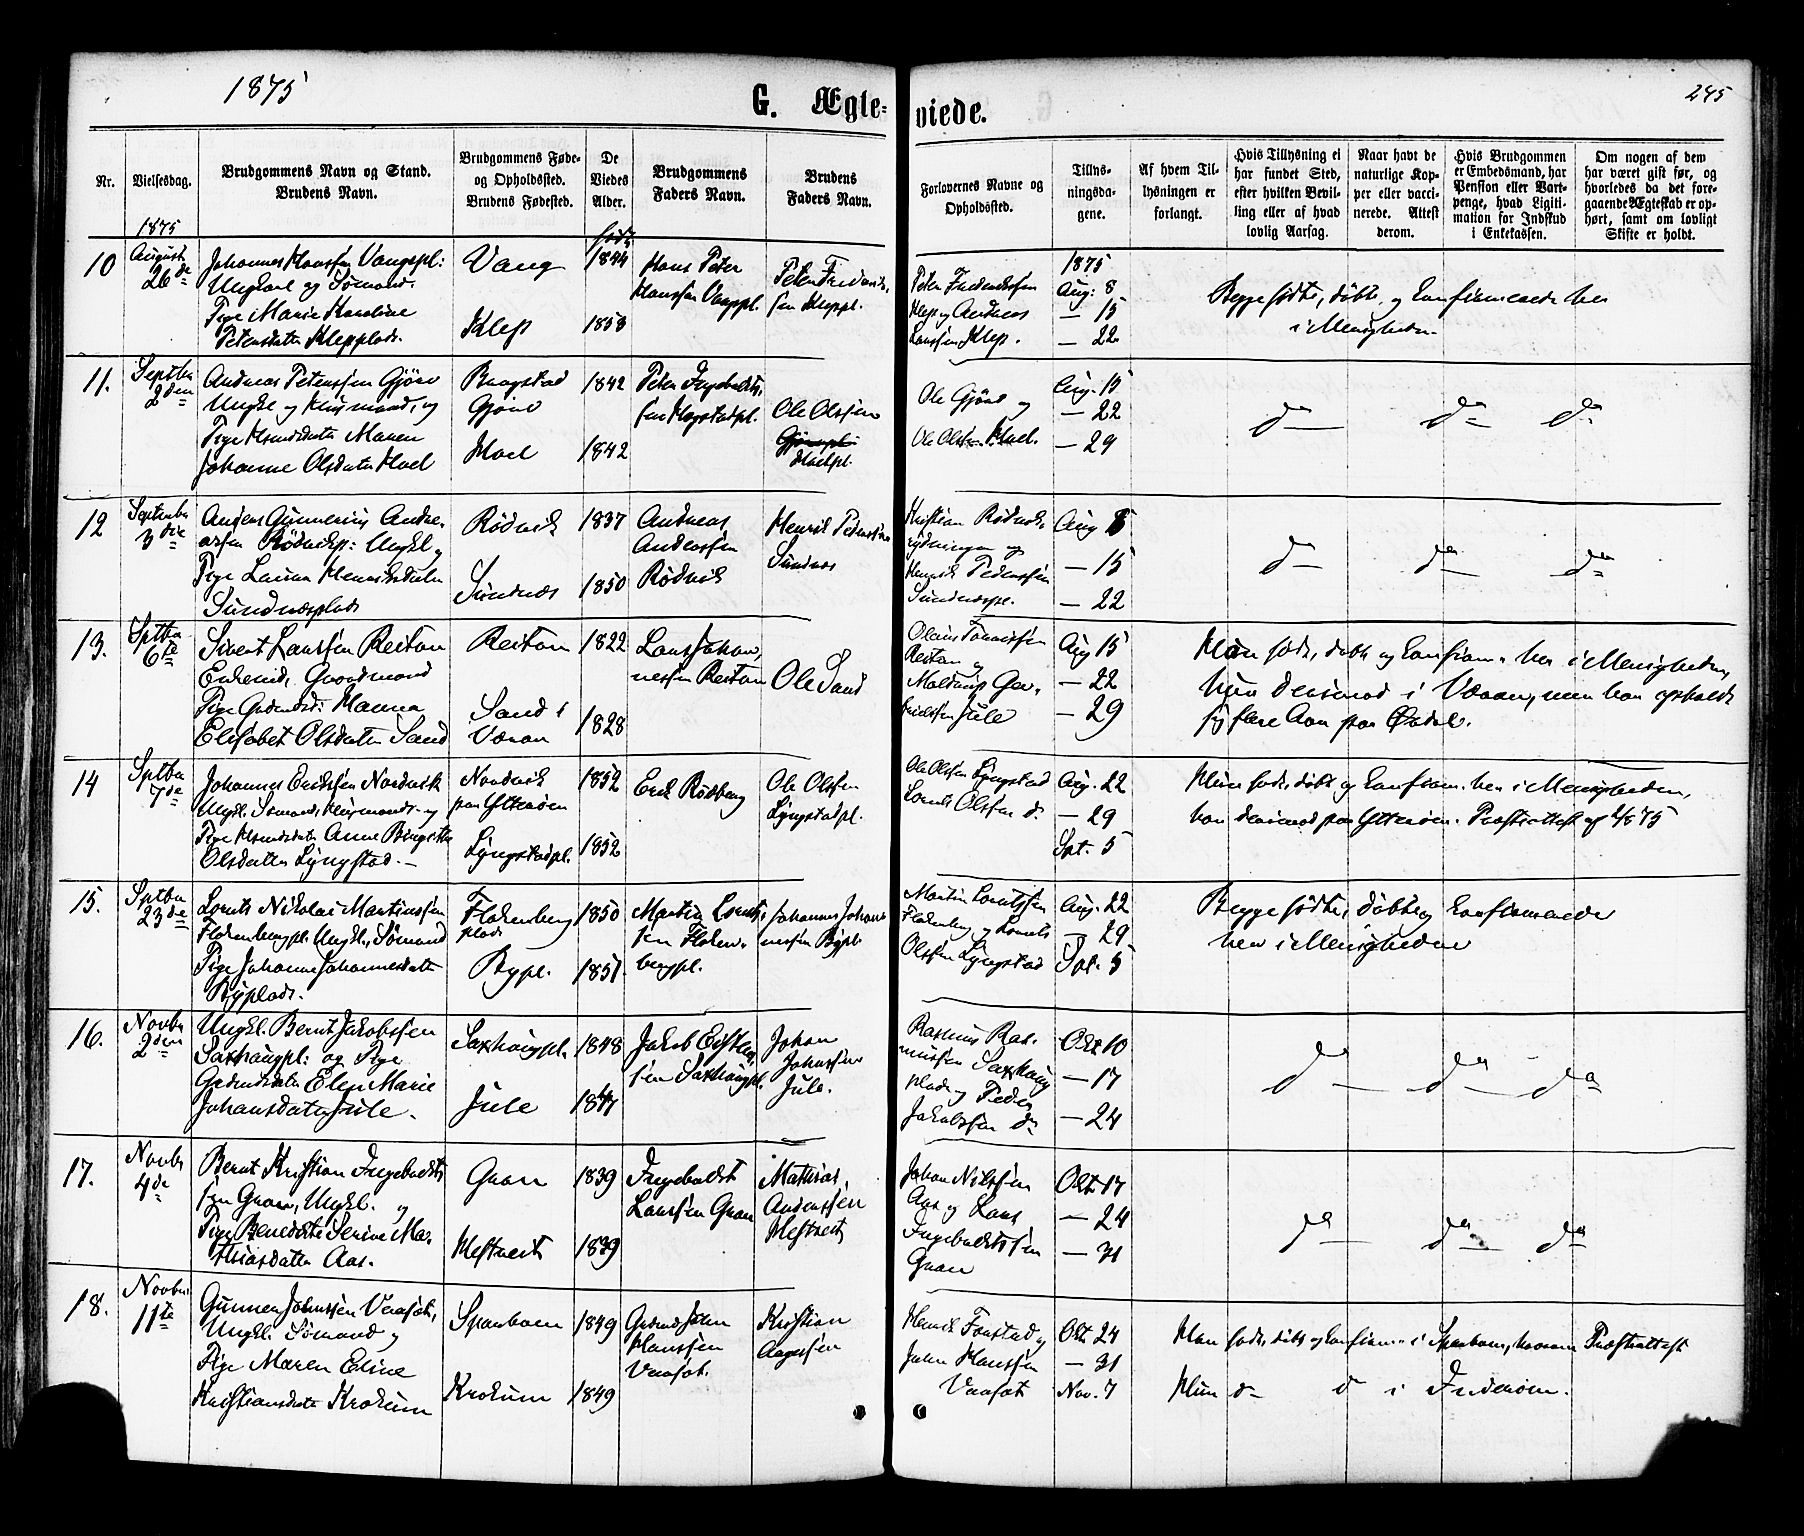 1875
G. Ægte-
viede.
245
Nr.
Vielsesdag.
Brudgommens Navn og Stand.
Brudens Navn.
Brudgommens Føde-
og Opholdssted.
Brudens Fødested.
De
Viedes
Alder.
Brudgommens
Faders Navn.
Brudens
Faders Navn.
Forlovernes Navne og
Opholdssted.
Tillys-
ningsda-
gene.
Af hvem Til-
lysningen er
forlangt.
Hvis Tillysning ei
har fundet Sted,
efter hvilken Bevil-
ling eller af hvad
lovlig Aarsag.
Naar havt de
naturlige Kop-
per eller vacci-
nerede. Attest
derom.
Hvis Brudgommen
er Embedsmand, har
Pension eller Vart-
penge, hvad Ligiti-
mation for Indskud
i Enkekassen.
Om nogen af dem
har været gift før, og
hvorledes da det fore-
gaaende Ægteskab er op-
hørt, samt om lovligt
Skifte er holdt.
1875
født
10
August
26de
Johannes Hanssen Vangspl:
Ungkarl og Sømand.
Pige Marie Karoline
Petersdatter Klepplads.
Vang
Klep
1844
1853
Hans Peter
Hanssen Vangpl.
Peter Frederik-
sen Kleppl.
Peter Frederikssen
Klep og Andreas
Larssen Klep.
1875
Aug: 8
— 15
— 22
Begge fødte, døbte og konfirmerede her
i Menigheden.
11.
Septbr
2den
Andreas Peterssen Gjørv
Ungkl og Husmand, og
Pige Husmdsdatter Maren
Johanne Olsdatter Hoel
Gjørv
Hoel
1842
1842
Peter Ingebrigts-
sen
Ole Olssen
Hoelpl.
Ole Gjørv og
Ole Olssen Hoel.
Aug. 15
— 22
— 29
do do do
12
September
3die
Anders Gunnerius Andre-
assen Rødvikpl: Ungkl og
Pige Laura Henriksdatter
Sundnesplads
Rødvik
Sundnes
1837
1850
Andreas
Anderssen
Rødvik
Henrik Peterssen
Sundnes
Kristian Rødvik-
rydningen og
Henrik Pederssen
Sundnespl.
Aug 8
— 15
— 22
do do do
13.
Sptbr
6te
Sivert Larssen Reitan
Enkemd, Gaardmand
Pige Gaardmdsd: Hanna
Elisabet Olsdatter Sand
Reitan
Sand i
Væran
1822
1828
Lars Johan-
nessen Reitan
Ole Sand
Reitan og
Jule
Aug 15
— 22
— 29
Han født, døbt og konfirm. her i Menigheden,
hun derimod i Væran, men har opholdt
sig flere Aar paa
14
Sptbr
7de
Johannes Erikssen Nordvik
Ungkl. Sømand, Husmands- og
Pige Husmdsdatter Anne Birgitte
Olsdatter Lyngstad. —
Nordvik
paa Ytterøen
Lyngstadpl.
1852
1852
Erik Rødberg
Ole Olssen
Lyngstadpl.
Ole Olssen Lyngstad
Lornts Olssen do
Aug. 22
— 29
Spt. 5
Hun født, døbt og konfirm. her i Menigheden,
han derimod paa Ytterøen. Præstattest af
15.
Sptbr
23de
Lornts Nikolai Martinssen
Flokenbergpl. Ungkl, Sømand
Pige Johanne Johannesdatter
Byplads.
Flokenberg
plads
Bypl.
1850
1851
Martin Lornts-
sen Floken-
bergpl.
Johannes Johan-
nessen Bypl.
Martin Lorntssen
Flokenberg og Lornts
Olssen Lyngstad
Aug. 22
— 29
Spt. 5
Begge fødte, døbte og konfirmerede
her i Menigheden
16.
Novbr
2den
Ungkl. Bernt Jakobssen
Saxhaugpl. og Pige
Grdmdsdatter Elen Marie
Johansdatter Jule.
Saxhaugpl.
Jule
1848
1847
Jakob
sen Saxhaugpl.
Johan
Johnssen
Jule.
Rasmus Ras-
mussen Saxhaug
plads og Peder
Jakobssen do
Okt 10
— 17
— 24
do do do
17.
Novbr
4de
Bernt Kristian Ingebrigts
sen Gran, Ungkl. og
Pige Benedikte Serine Ma-
thiasdatter Aas.
Gran
Hestveit
1839
1839
Ingebrigt
Larssen Gran
Mathias
Anderssen
Hestveit
Johan Nilssen
Aas og Lars
Ingebrigtssen
Gran
Okt 17
— 24
— 31
do do do
18.
Novbr.
11te
Gunner Johnssen
Ungkl. Sømand og
Pige Maren Eline
Kristiansdatter Krokum
Sparboen
Krokum
1849
1849
Grdmd John
Hanssen
Kristian
Aagessen
Henrik og
John Hanssen
Okt 24
— 31
Nov. 7
Han født, døbt og konfirm. i Sparboen, hvorom Præsteattest
Hun do do i Inderøen.